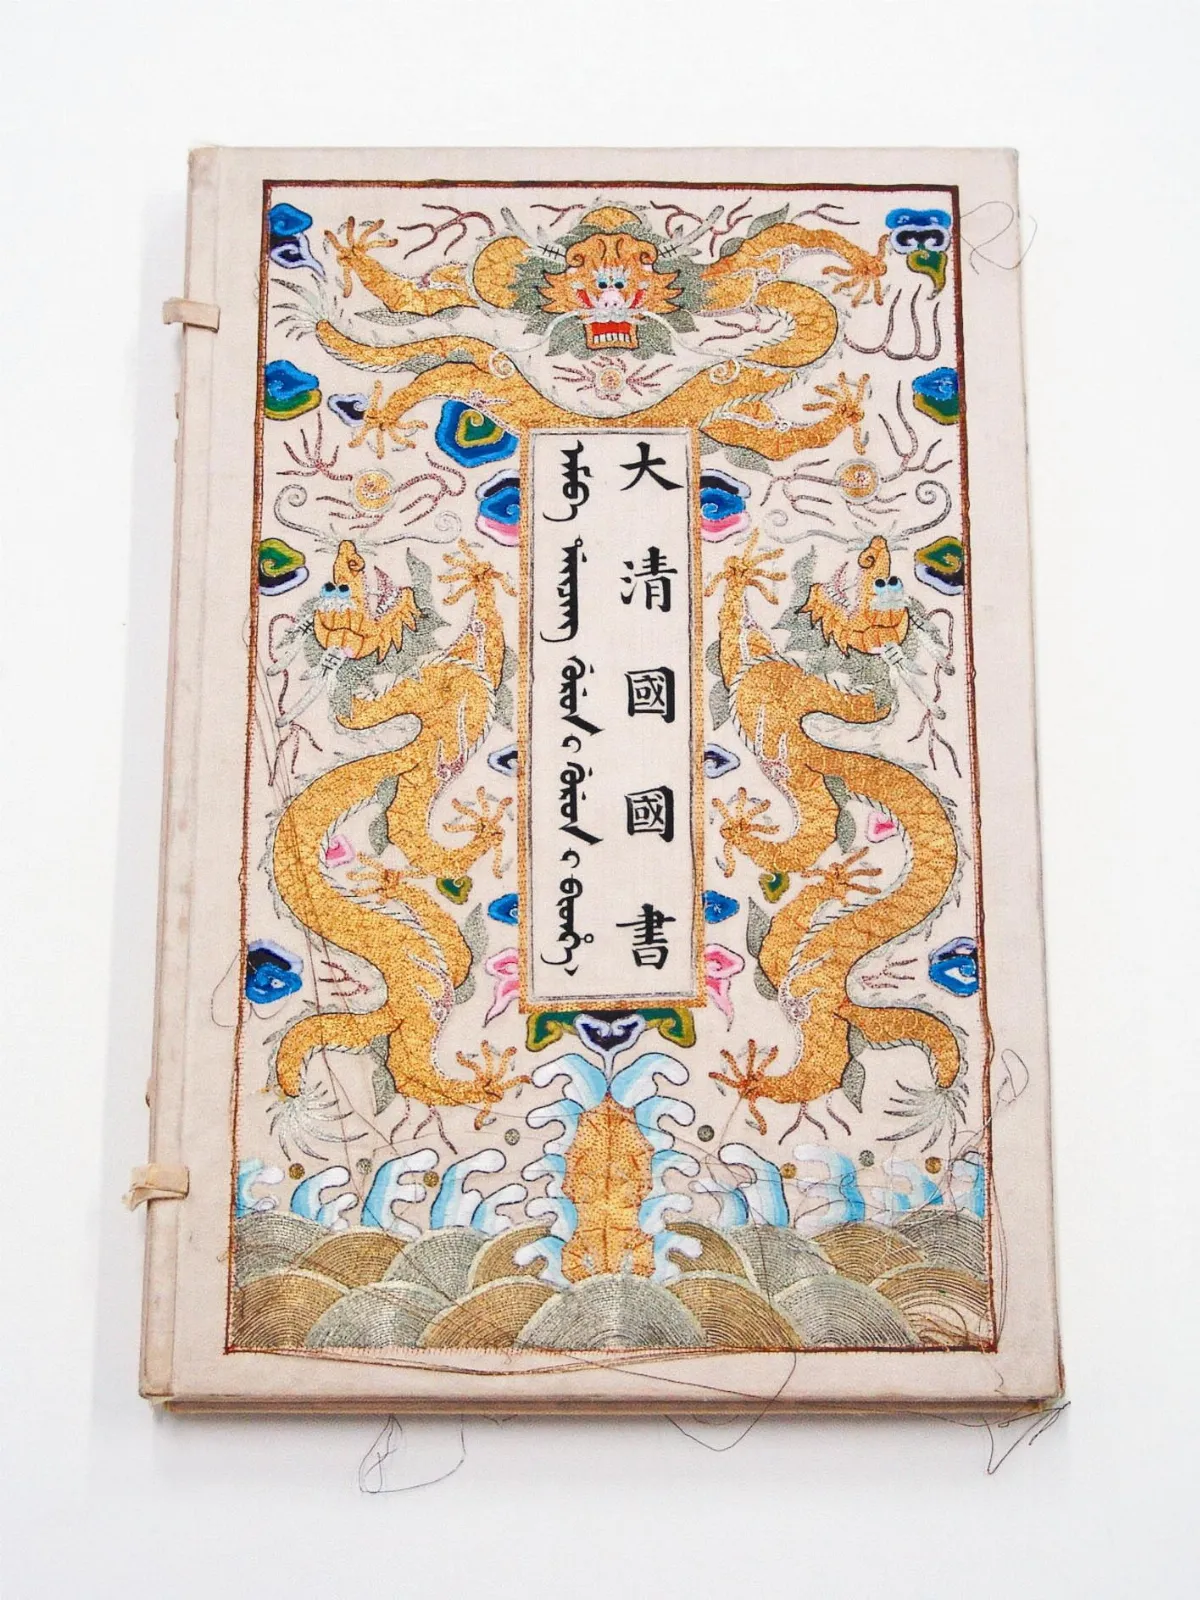 大清國國書
ᠠᠮᠪᠠ ᡩᠠᡳᠴᡳᠩ ᡤᡠᡵᡠᠨ ᡳ ᡤᡠᡵᡠᠨ ᡳ ᠪᡳᡨᡥᡝ